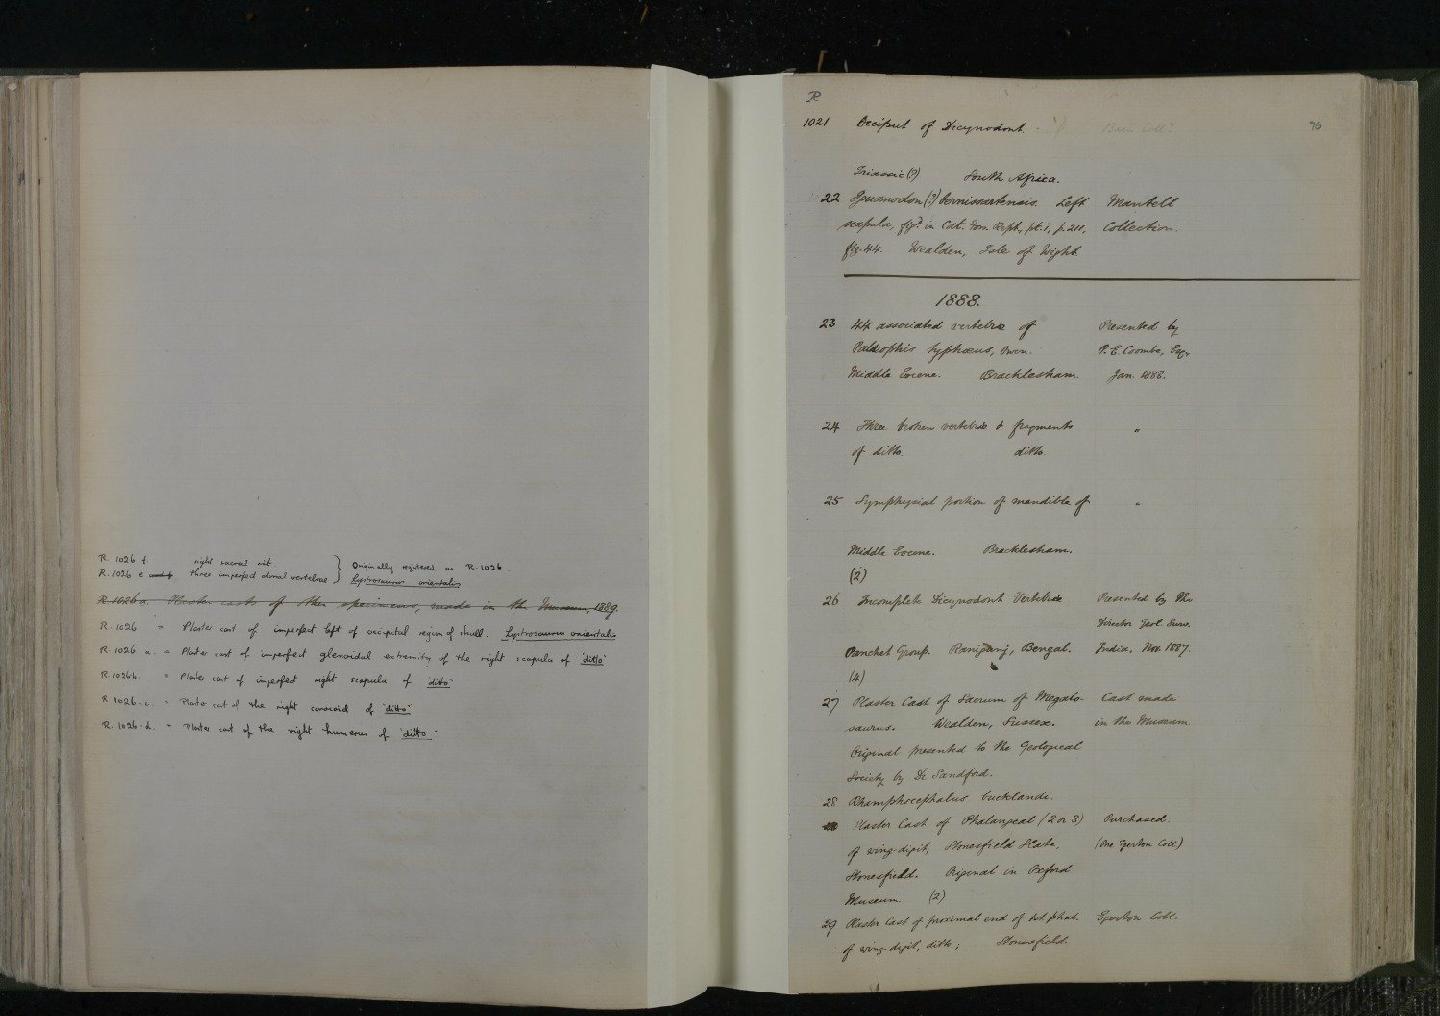 R. 1026 f. right sacral rib } Originally registered as R. 1026.
R. 1026 e three imperfect dorsal vertebrae } Lystrosaurus orientalis
R. 1026a. Plaster casts of other specimens, made in the Museum, 1889.
R. 1026 = Plaster cast of imperfect left of occipital region of skull. Lystrosaurus orientalis
R. 1026 a. = Plaster cast of imperfect glenoidal extremity of the right scapula of "ditto"
R. 1026 b. = Plaster cast of imperfect right scapula of "ditto"
R. 1026 c. = Plaster cast of the right coracoid of "ditto"
R. 1026 d. = Plaster cast of the right humerus of "ditto"
R
1021 Occiput of Dicynodont. Bain Coll.
Triassic (?) South Africa.
22 Iguanodon (?) bernissartensis. Left Mantell
scapula, figd. in Cat. Foss. Rept., pt. 1, p. 211, Collection.
fig. 44. Wealden, Isle of Wight.
1888.
23 44 associated vertebræ of Presented by
Palæophis typhæus, Owen. P. E. Coombe, Esq.
Middle Eocene. Bracklesham. Jan. 1888.
24 Three broken vertebræ & fragments "
of ditto. ditto.
25 Symphysial portion of mandible of "
Middle Eocene. Bracklesham.
(2)
26 Incomplete Dicynodont Vertebræ Presented by the
Director Geol. Surv.
Panchet Group. Raniganj, Bengal. India, Nov. 1887.
(4)
27 Plaster Cast of Sacrum of Megalo- Cast made
saurus. Wealden, Sussex. in the Museum.
Original presented to the Geological
Society by Dr Sandford.
28 Rhamphocephalus bucklandi.
Plaster Cast of Phalangeal (2 or 3) Purchased.
of wing-digit, Stonesfield Slate, (One Egerton Coll.)
Stonesfield. Original in Oxford
Museum. (2)
29 Plaster Cast of proximal end of 1st phal. Egerton Coll.
of wing-digit, ditto; Stonesfield.